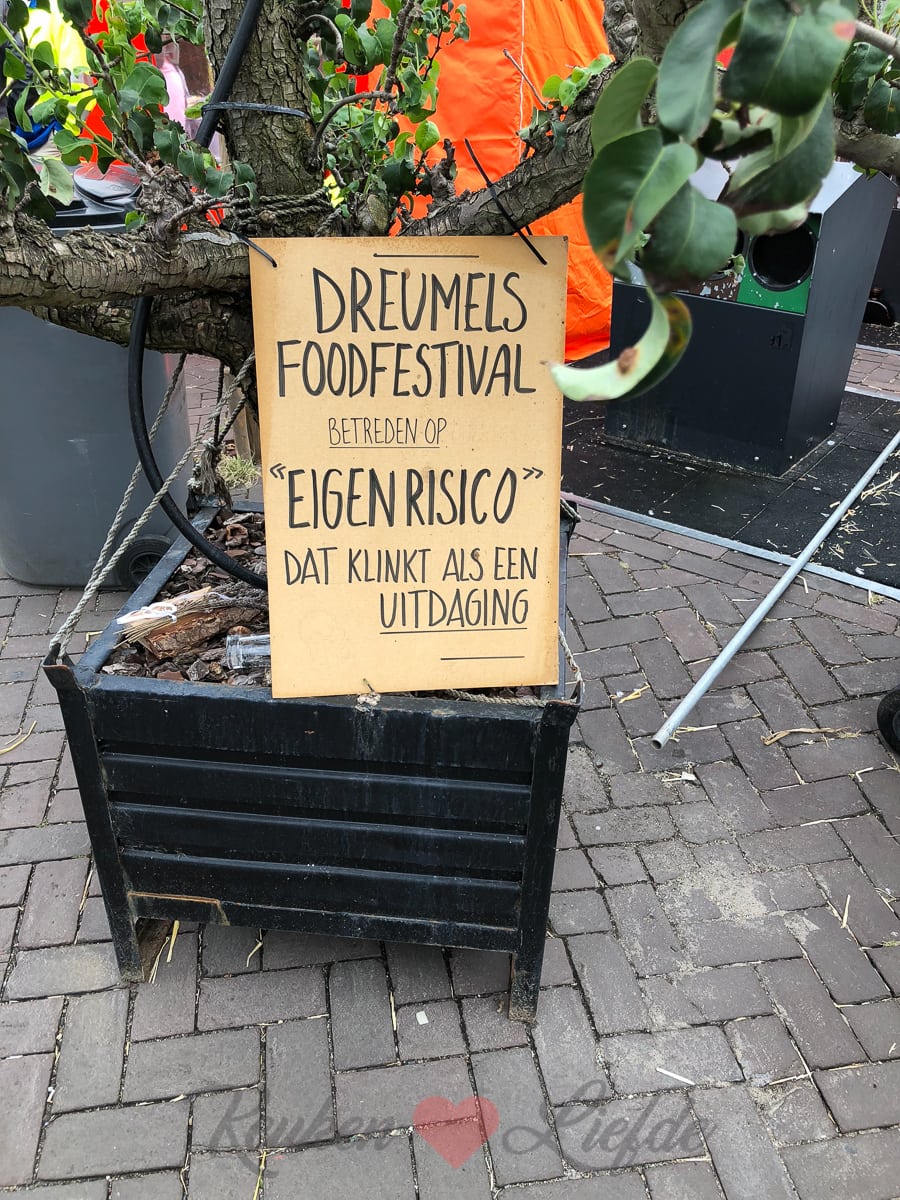 DREUMELS
FOODFESTIVAL
BETREDEN OP
“EIGEN RISICO”
DAT KLINKT ALS EEN
UITDAGING
Keuken Liefde